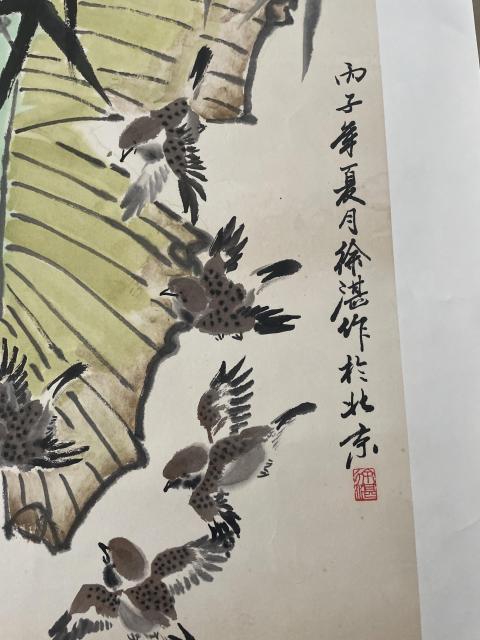 丙子年夏月徐湛作於北京